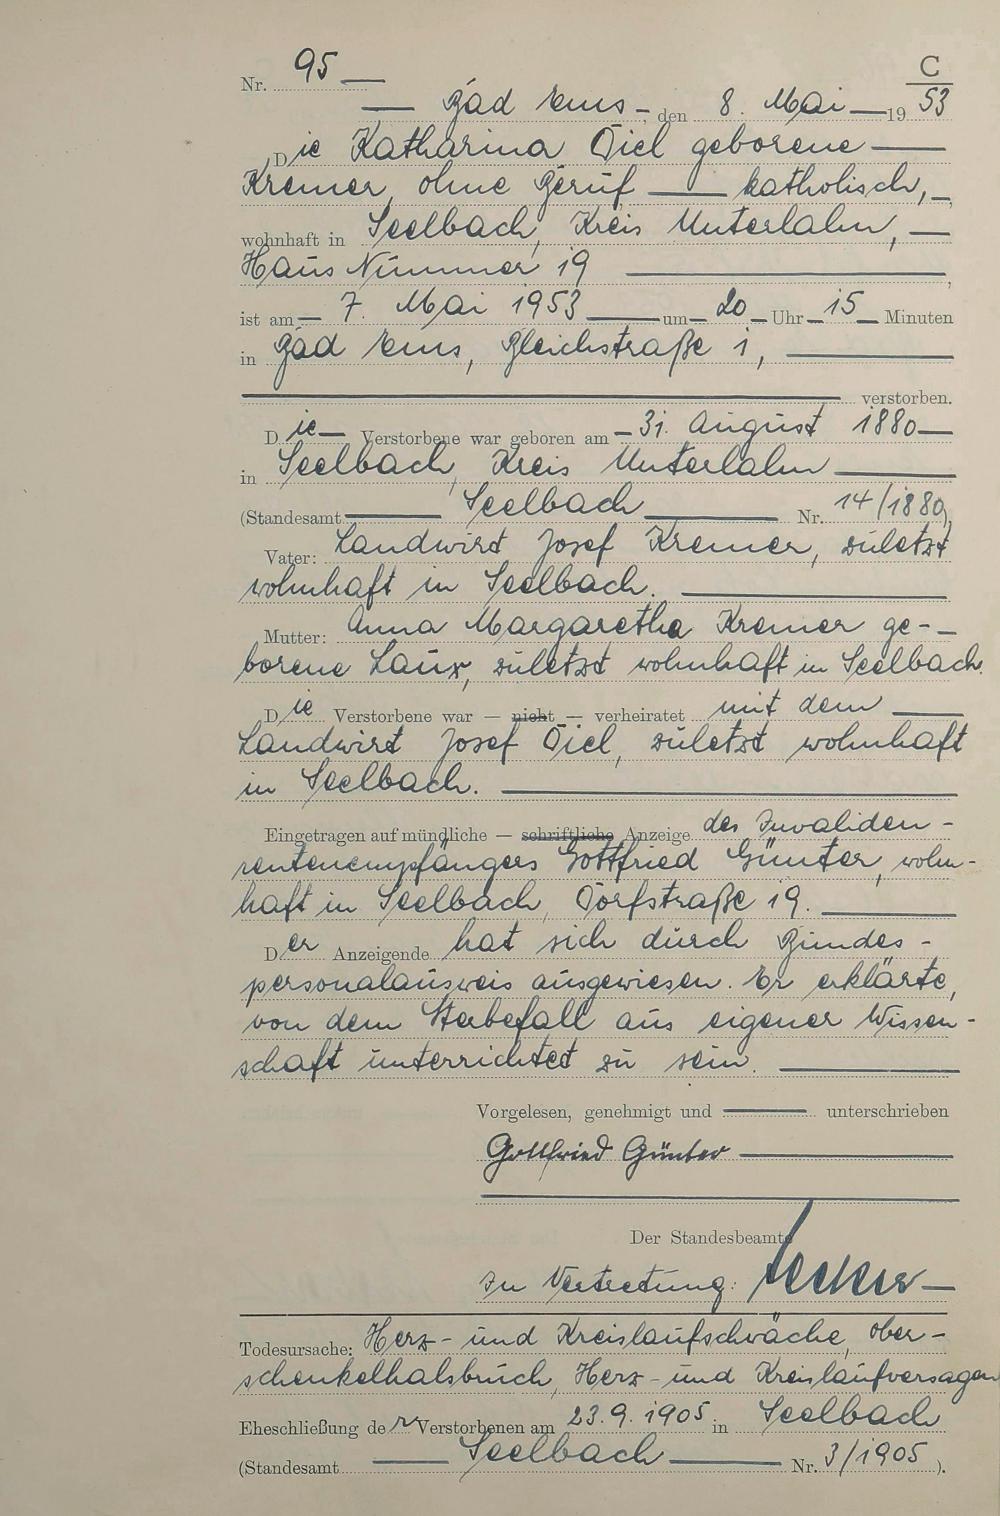 C
Nr. 95 —
— Bad Ems —, den 8. Mai — 19 53
Die Katharina Diel geborene —
Kremer, ohne Beruf — katholisch, —
wohnhaft in Seelbach, Kreis Unterlahn, —
Haus Nummer 19 —,
ist am — 7. Mai 1953 — um — 20 — Uhr — 15 — Minuten
in Bad Ems, Bleichstraße 1, —
— verstorben.
Die — Verstorbene war geboren am — 31. August 1880 —
in Seelbach, Kreis Unterlahn —
(Standesamt — Seelbach — Nr. 14/1880)
Vater: Landwirt Josef Kremer, zuletzt
wohnhaft in Seelbach. —
Mutter: Anna Margaretha Kremer ge- —
borene Laux, zuletzt wohnhaft in Seelbach.
Die Verstorbene war — nicht — verheiratet mit dem —
Landwirt Josef Diel, zuletzt wohnhaft
in Seelbach. —
Eingetragen auf mündliche — schriftliche Anzeige des Invaliden-
rentenempfängers Gottfried Günter, wohn-
haft in Seelbach, Dorfstraße 19. —
Der Anzeigende hat sich durch Bundes-
personalausweis ausgewiesen. Er erklärte,
von dem Sterbefall aus eigener Wissen-
schaft unterrichtet zu sein. —
Vorgelesen, genehmigt und — unterschrieben
Gottfried Günter —
Der Standesbeamte
In Vertretung: —
Todesursache: Herz- und Kreislaufschwäche, Ober-
schenkelhalsbruch, Herz- und Kreislaufversagen
Eheschließung der Verstorbenen am 23.9.1905 in Seelbach
(Standesamt — Seelbach — Nr. 3/1905).